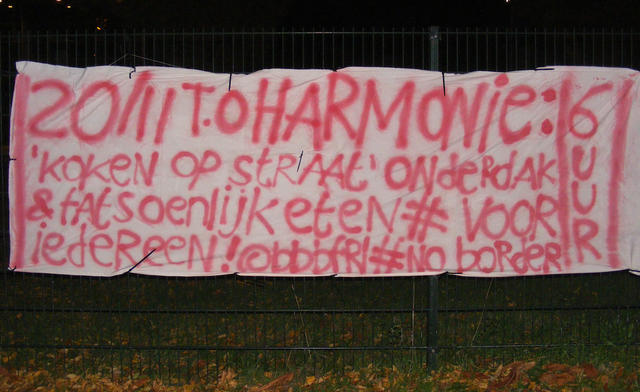 20/11 T.O HARMONIE:
'KOKEN OP STRAAT' ONDERDAK
& FATSOENLIJK ETEN # VOOR
IEDEREEN! @bbbfrl # NO border
6 UUR